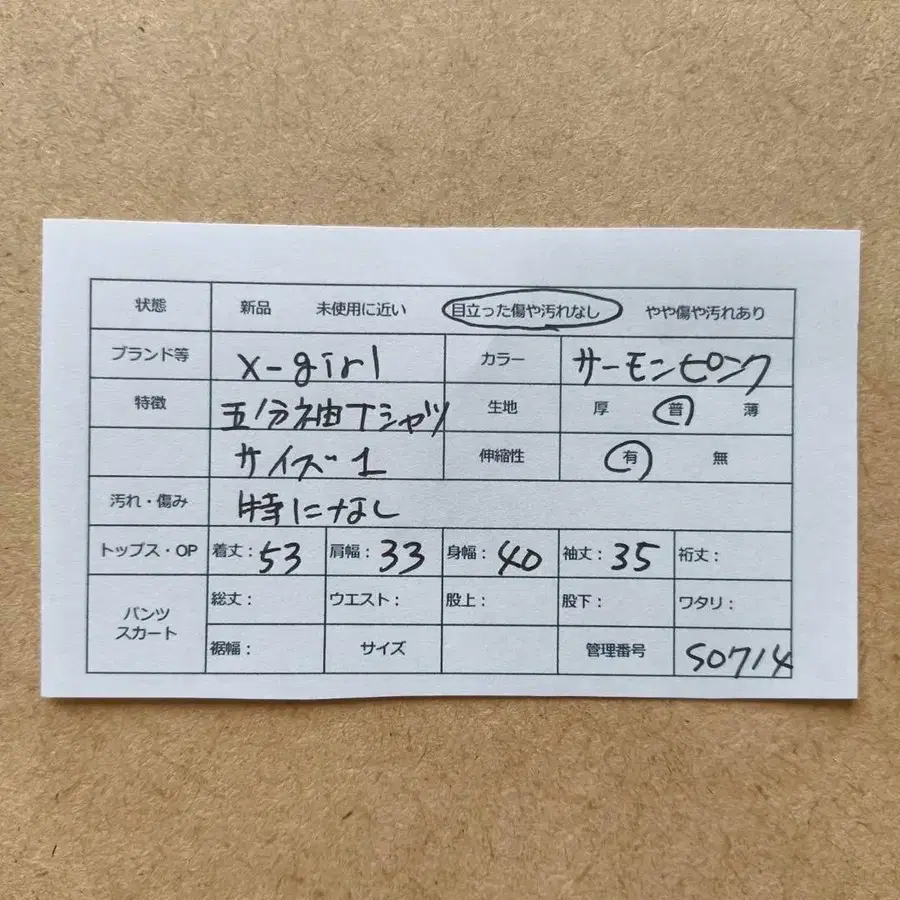 状態 新品 未使用に近い 目立った傷や汚れなし やや傷や汚れあり
ブランド等 x-girl カラー サーモンピンク
特徴 五分袖Tシャツ 生地 厚 普 薄
サイズ1 伸縮性 有 無
汚れ・傷み 特になし
トップス・OP 着丈：53 肩幅：33 身幅：40 袖丈：35 裄丈：
パンツ スカート 総丈： ウエスト： 股上： 股下： ワタリ：
裾幅： サイズ 管理番号 S0714